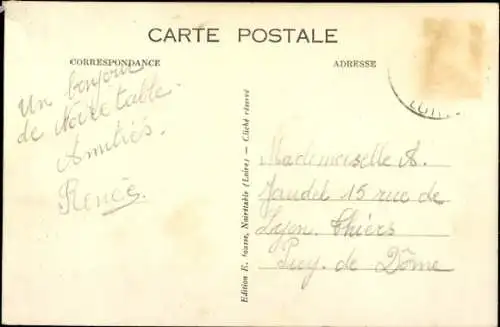 CARTE POSTALE
CORRESPONDANCE
ADRESSE
Un bonjour
de Noiretable.
Amitiés.
Renée.
Edition E. Sausse, Noirétable (Loire) - Cliché réservé
Mademoiselle A.
Jaudel 15 rue de
Lyon. Thiers
Puy. de Dôme